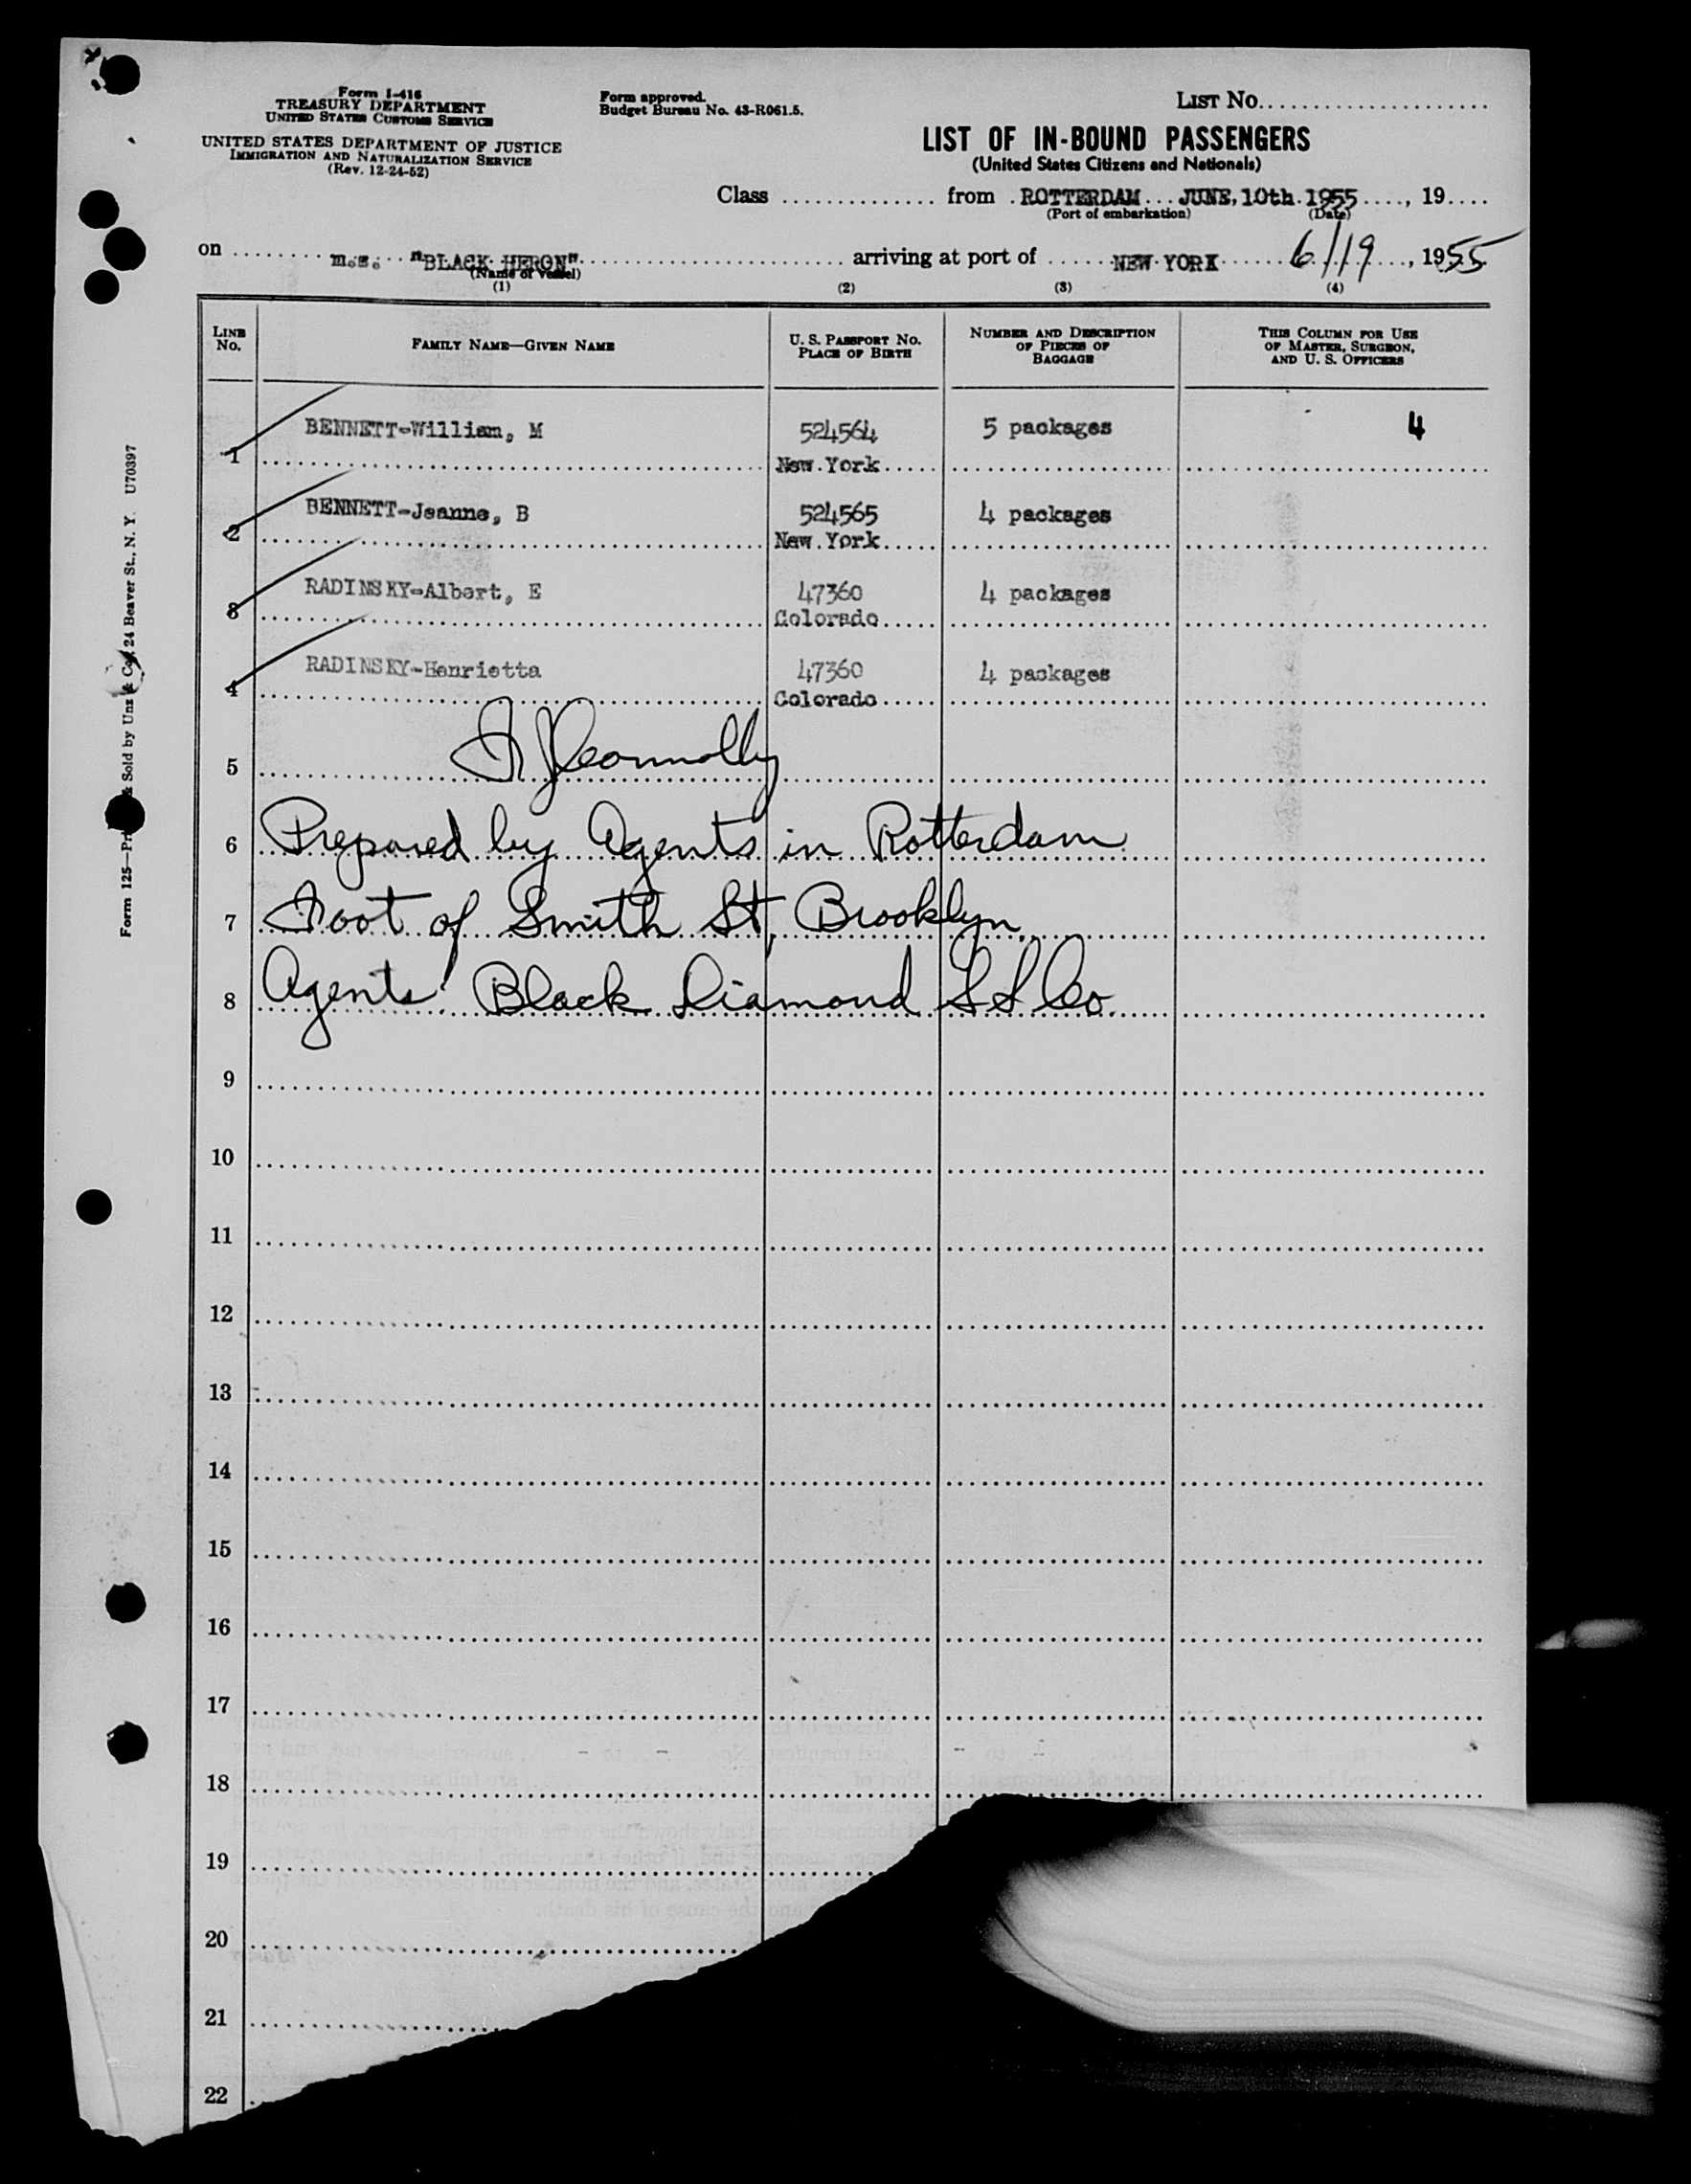 Form I-416
TREASURY DEPARTMENT
UNITED STATES CUSTOMS SERVICE
UNITED STATES DEPARTMENT OF JUSTICE
IMMIGRATION AND NATURALIZATION SERVICE
(Rev. 12-24-52)
Form approved.
Budget Bureau No. 43-R061.5.
LIST No.
LIST OF IN-BOUND PASSENGERS
(United States Citizens and Nationals)
Class from ROTTERDAM JUNE, 10th 1955, 19
(Port of embarkation) (Date)
on m.s. "BLACK HERON" arriving at port of NEW YORK 6/19, 1955
(Name of vessel)
(1) (2) (3) (4)
LINE No. FAMILY NAME—GIVEN NAME U. S. PASSPORT No. PLACE OF BIRTH NUMBER AND DESCRIPTION OF PIECES OF BAGGAGE THIS COLUMN FOR USE OF MASTER, SURGEON, AND U. S. OFFICERS
1 BENNETT-William, M 524564 5 packages 4
New York
2 BENNETT-Jeanne, B 524565 4 packages
New York
3 RADINSKY-Albert, E 47360 4 packages
Colorado
4 RADINSKY-Henrietta 47360 4 packages
Colorado
5 Connolly
6 Prepared by Agents in Rotterdam
7 Foot of Smith St, Brooklyn.
8 Agents: Black Diamond S S Co.
9
10
11
12
13
14
15
16
17
18
19
20
21
22
Form 125— & Sold by Unz & Co., 24 Beaver St., N. Y. U70397